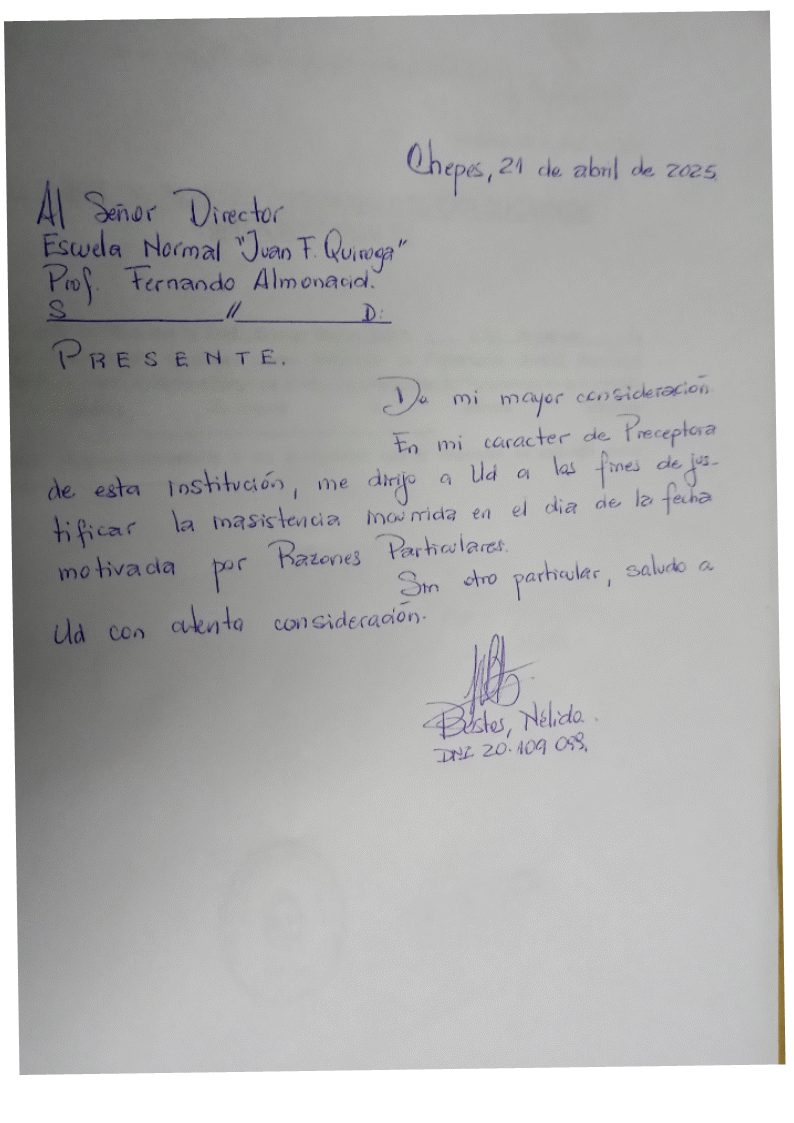 Chepes, 21 de abril de 2025.
Al Señor Director
Escuela Normal "Juan F. Quiroga"
Prof. Fernando Almonacid.
S__________//__________D:
PRESENTE.
De mi mayor consideración
En mi caracter de Preceptora
de esta institución, me dirijo a Ud a las fines de jus-
tificar la inasistencia incurrida en el dia de la fecha
motivada por Razones Particulares.
Sin otro particular, saludo a
Ud con atenta consideración.
Bustos, Nélida.
DNI 20.109 099.